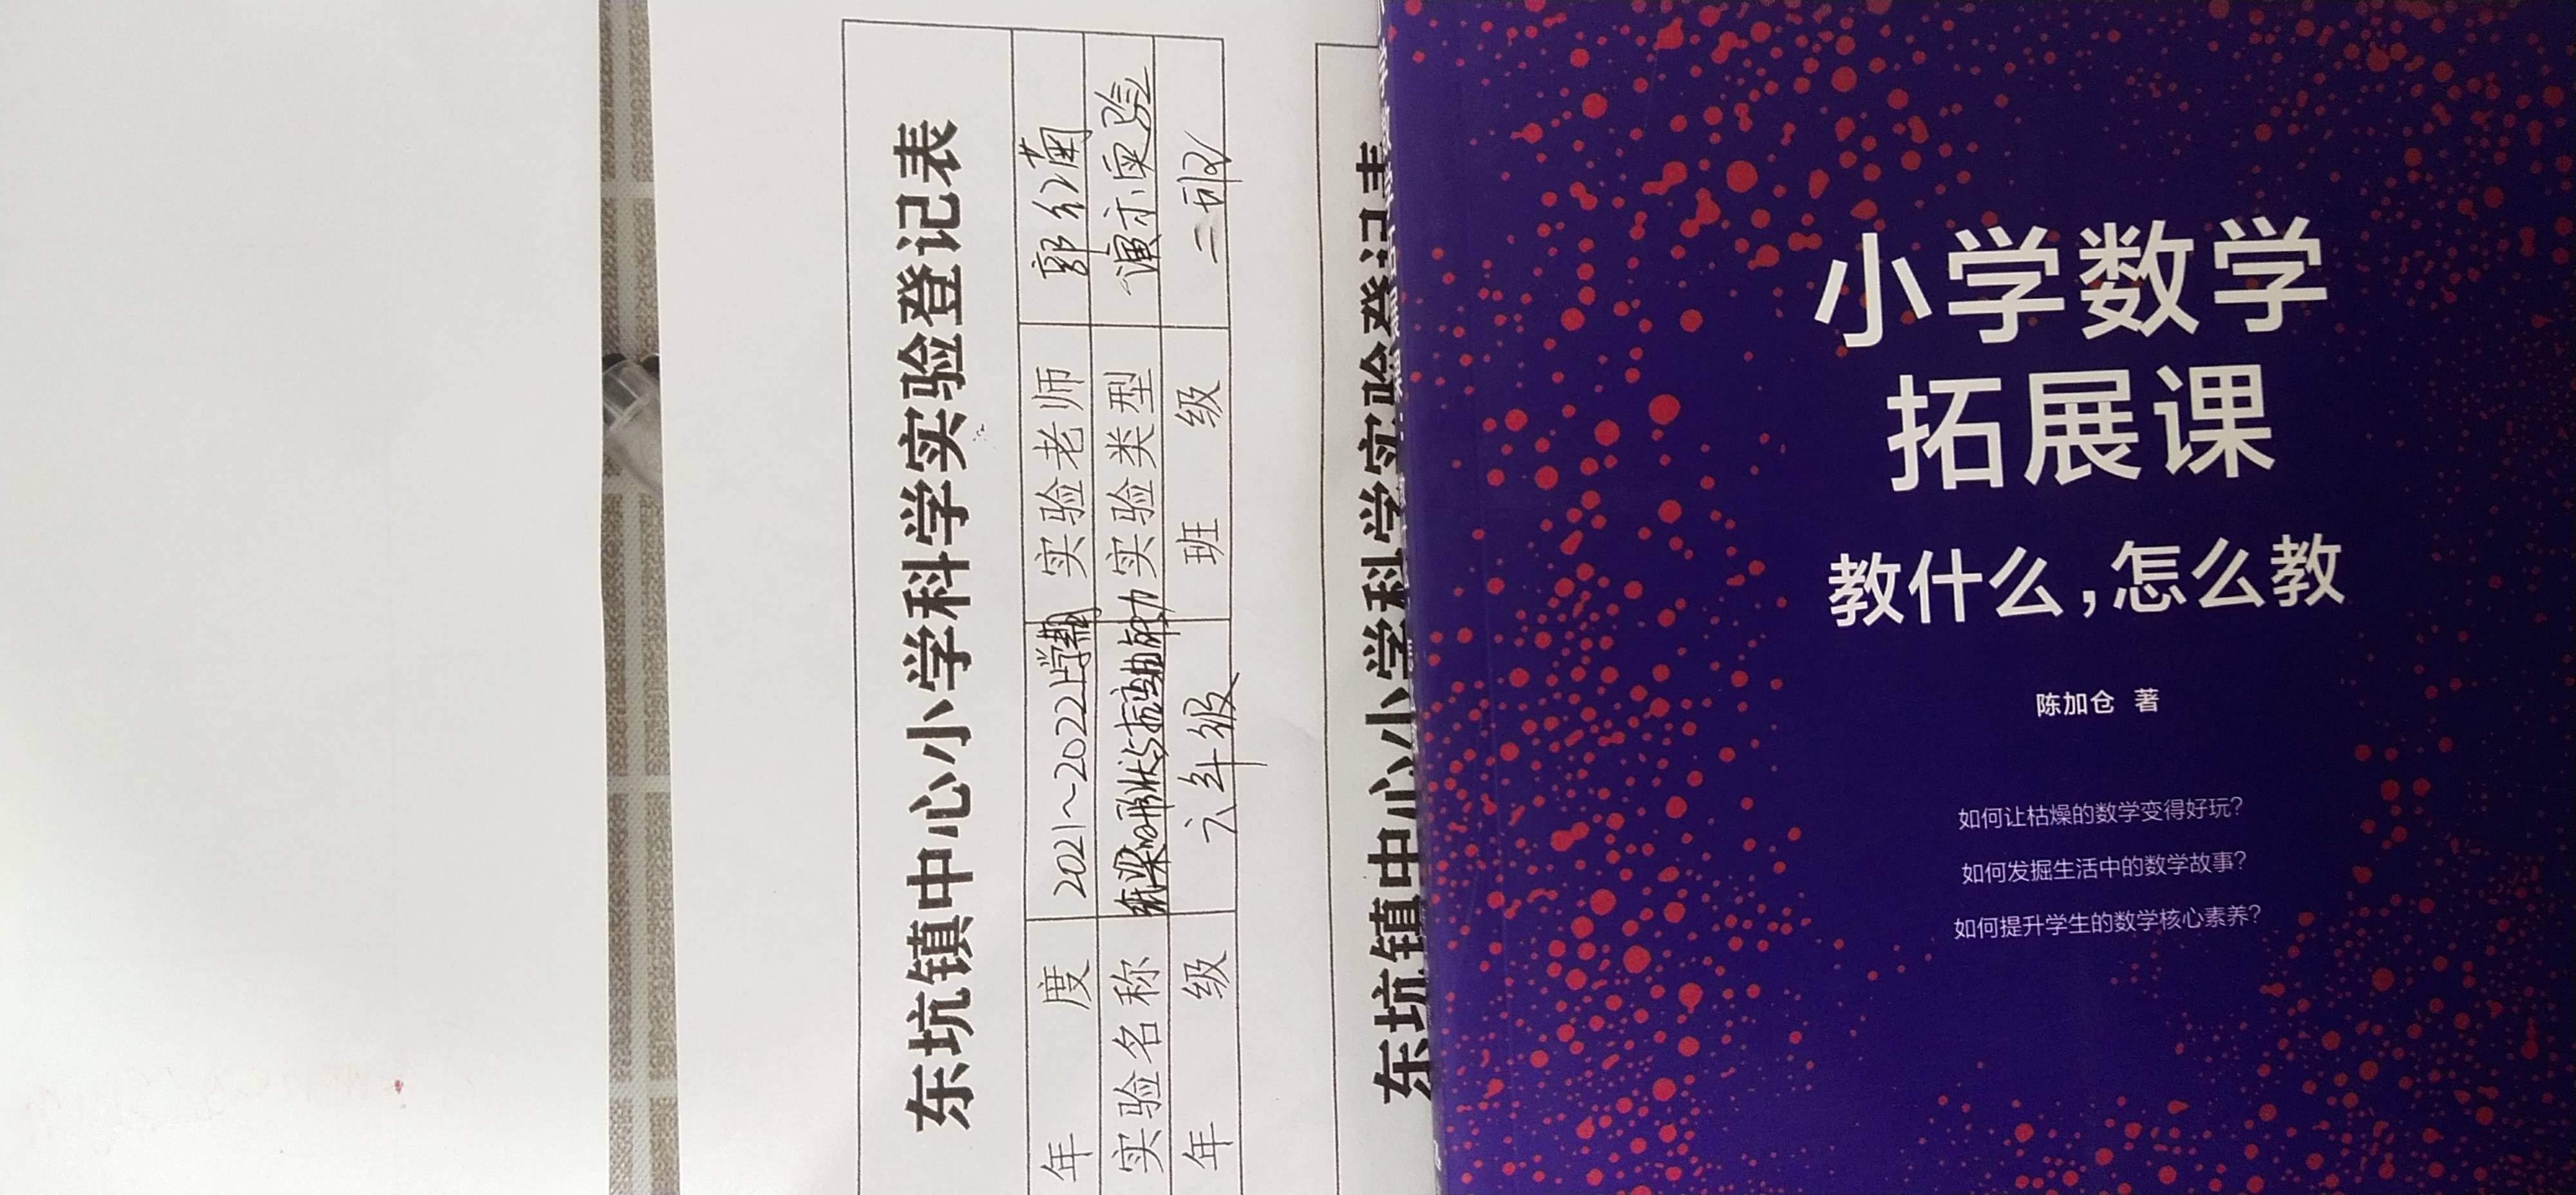 东坑镇中心小学科学实验登记表
年 度 2021～2022上学期 实验老师 郭红菊
实验名称 纸梁的形状与抗弯曲能力 实验类型 演示实验
年 级 六年级 班 级 二班
东坑镇中心小学科学实验登记表
小学数学
拓展课
教什么，怎么教
陈加仓 著
如何让枯燥的数学变得好玩？
如何发掘生活中的数学故事？
如何提升学生的数学核心素养？